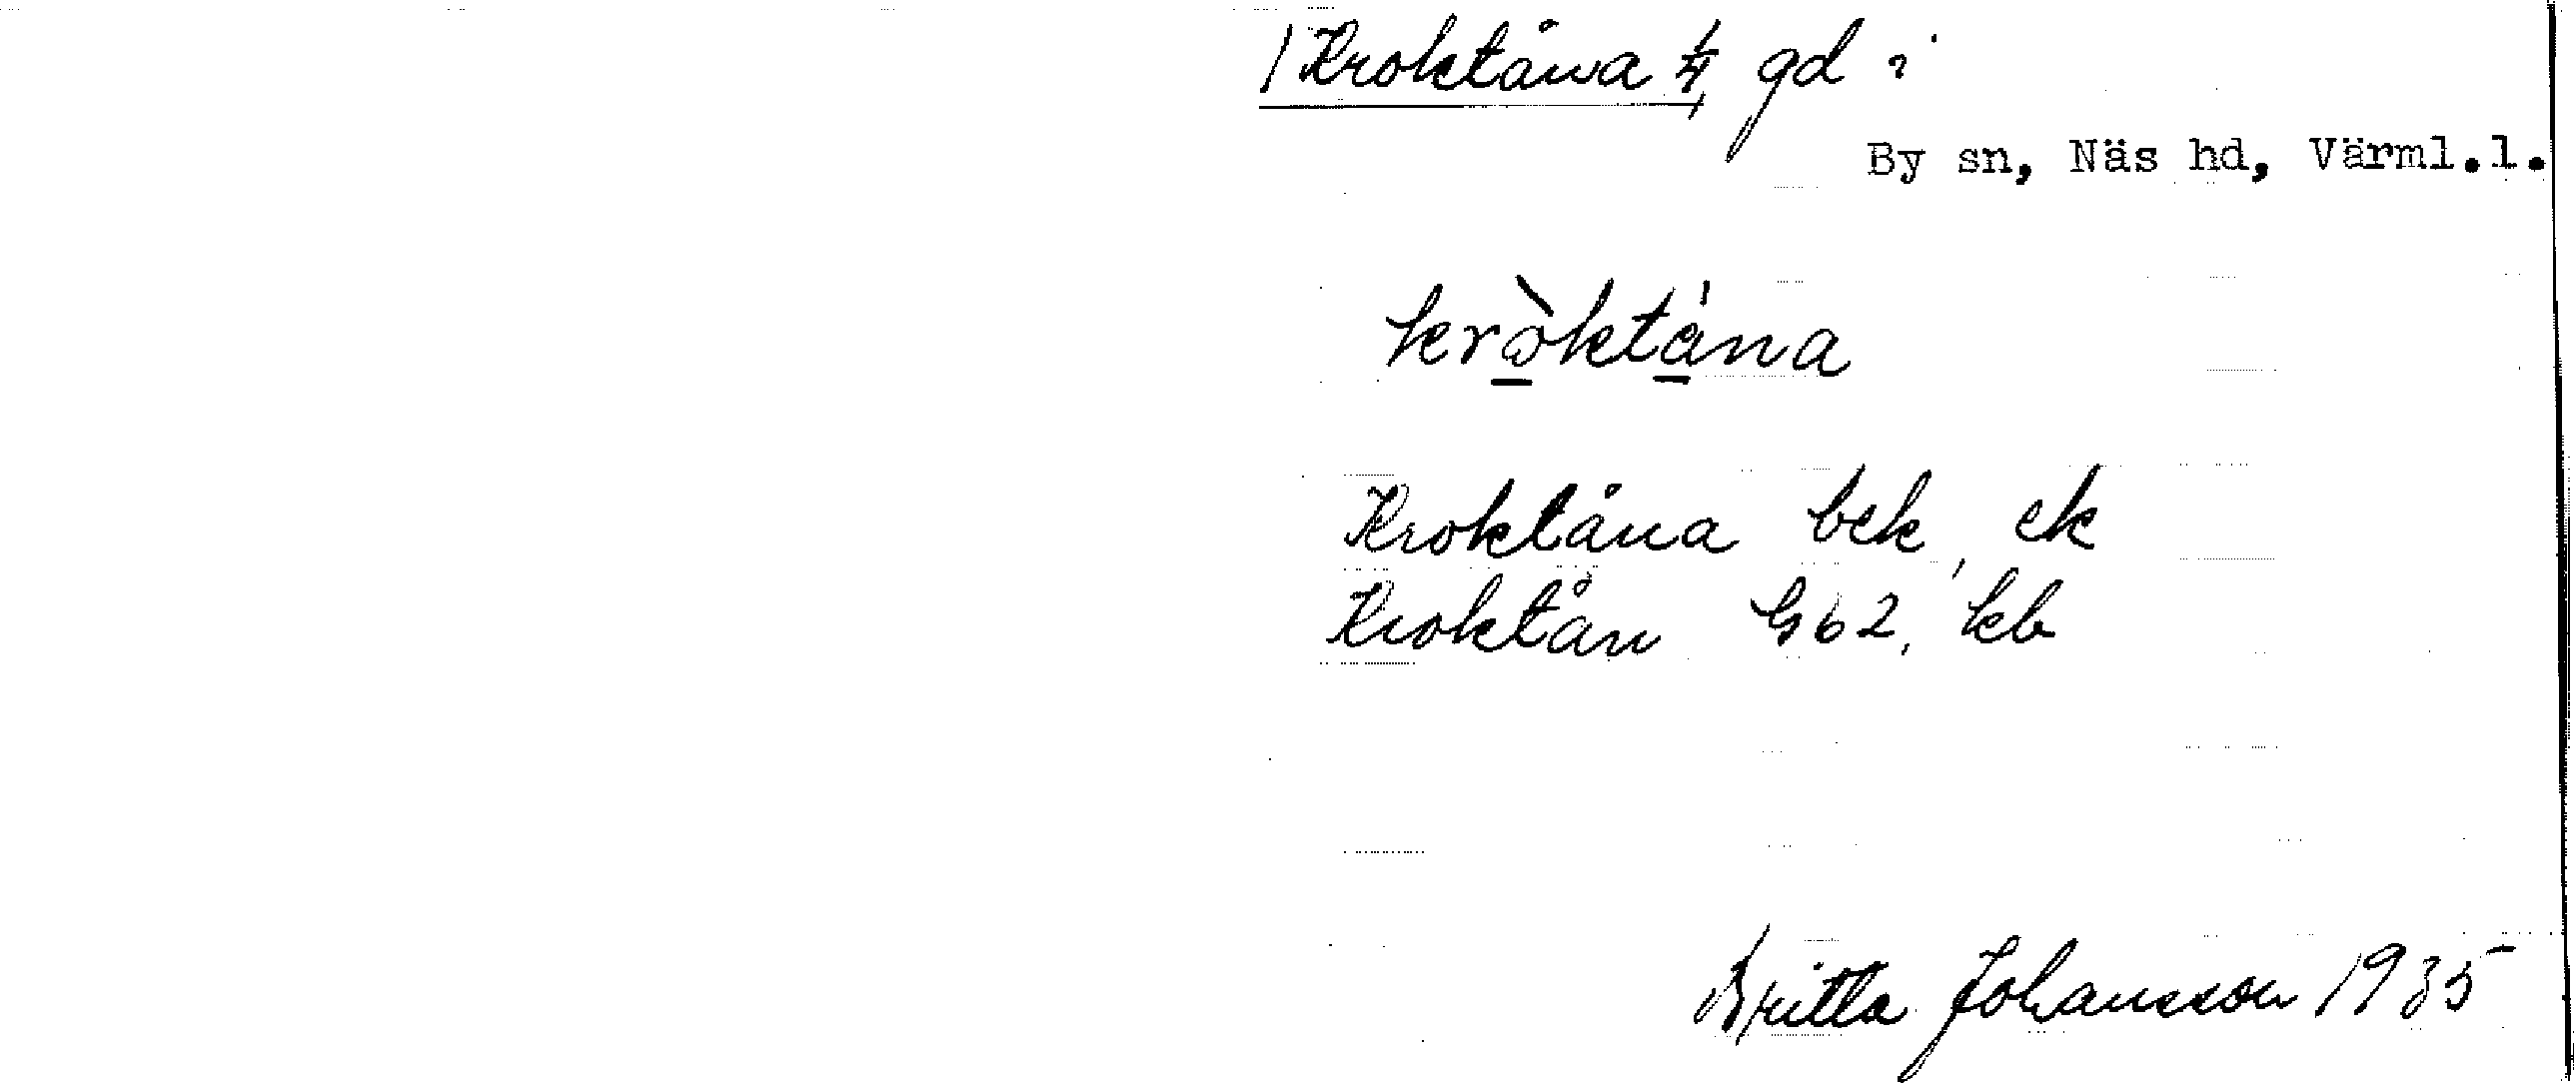 1 Kroktåna 4/4 gd i
By sn, Näs hd, Värml.l.
kròktåna
Kroktåna bek, ek
Kroktån G62, kb
Britta Johansson 1935